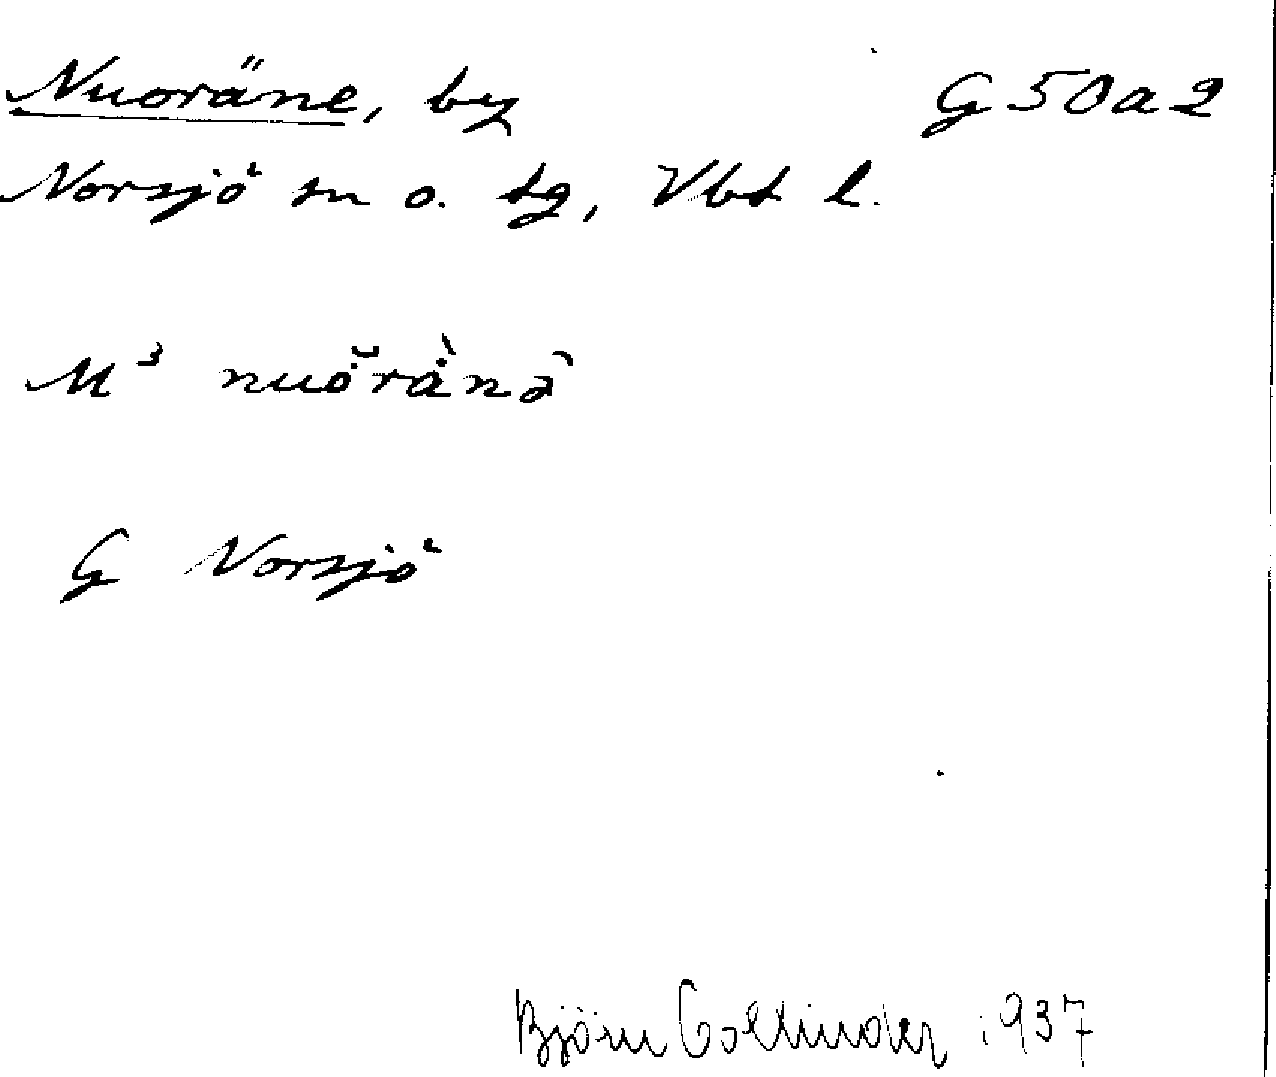 Nuoräne, by G 50 a 2
Norsjö sn o. tg, Vbt l.
M³
G Norsjö
Björn Collinder 1937